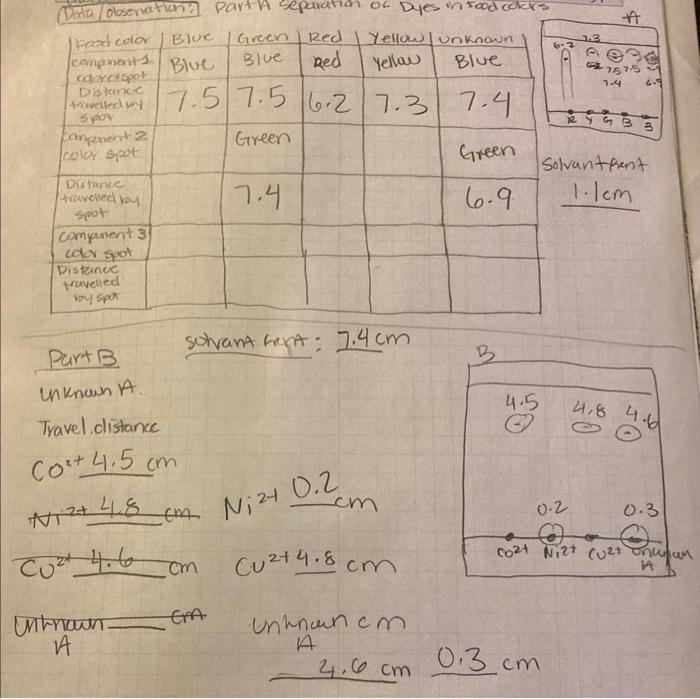 Data/observation: Part A Separation of Dyes in food colors
Food color Blue Green Red Yellow unknown
component 1 color of spot Blue Blue Red Yellow Blue
Distance travelled by spot 7.5 7.5 6.2 7.3 7.4
Component 2 color spot Green Green
Distance travelled by spot 7.4 6.9
component 3 color spot
Distance travelled by spot
A
7.3
6.2
7.5 7.5
7.4 6.9
R Y G B
Solvant front
1.1cm
Solvant front: 7.4 cm
Part B
unknown A.
Travel distance
Co2+ 4.5 cm
Ni2+ 4.8 cm Ni2+ 0.2 cm
Cu2+ 4.6 cm Cu2+ 4.8 cm
Unknown A cm unknown cm
A
4.6 cm 0.3 cm
B
4.5 4.8 4.6
0.2 0.3
Co2+ Ni2+ Cu2+ unknown
A